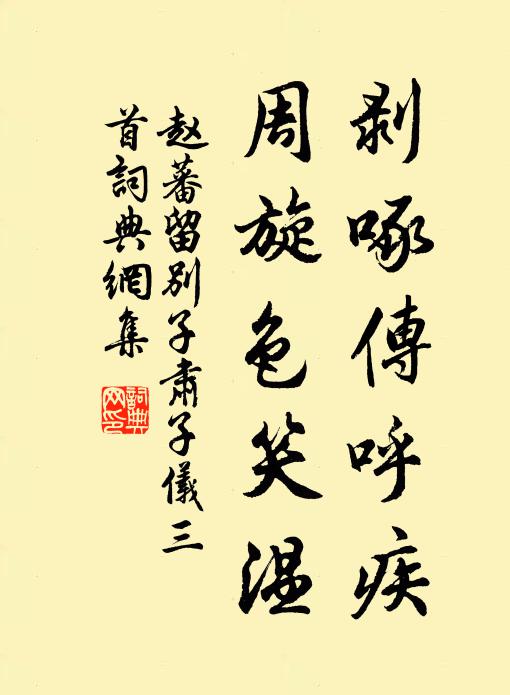 剥啄傳呼疾
周旋色笑温
赵蕃留别子肅子儀三
首詞典網集
詞典
网印